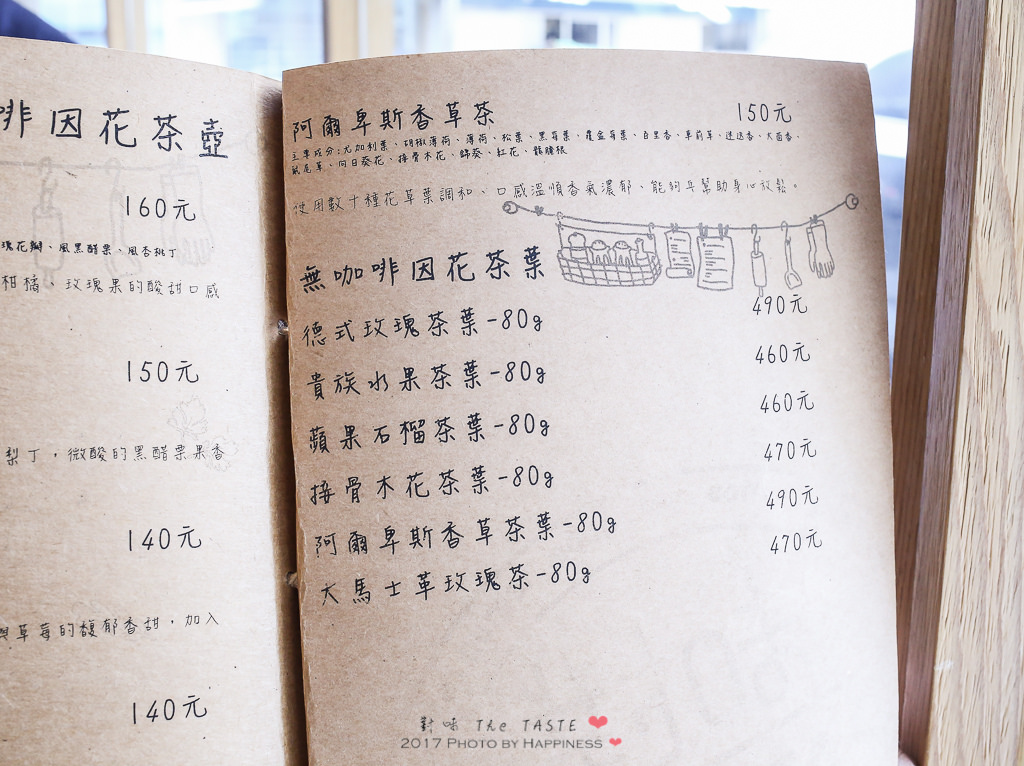 啡因花茶壺
160元
瑰花瓣、風黑醋栗、風杏桃丁
柑橘，玫瑰果的酸甜口感
150元
梨丁，微酸的黑醋栗果香
140元
草莓的馥郁香甜，加入
140元
阿爾卑斯香草茶 150元
主要成分:尤加利葉、胡椒薄荷、薄荷、松葉、黑莓葉、覆盆莓葉、百里香、車前草、迷迭香、大茴香、
鼠尾草、向日葵花、接骨木花、錦葵、紅花、龍膽根
使用數十種花草葉調和、口感溫順香氣濃郁、能夠幫助身心放鬆。
無咖啡因花茶葉
德式玫瑰茶葉-80g 490元
貴族水果茶葉-80g 460元
蘋果石榴茶葉-80g 460元
接骨木花茶葉-80g 470元
阿爾卑斯香草茶葉-80g 490元
大馬士革玫瑰茶-80g 470元
對味 The TASTE
2017 PHOTO BY HAPPINESS